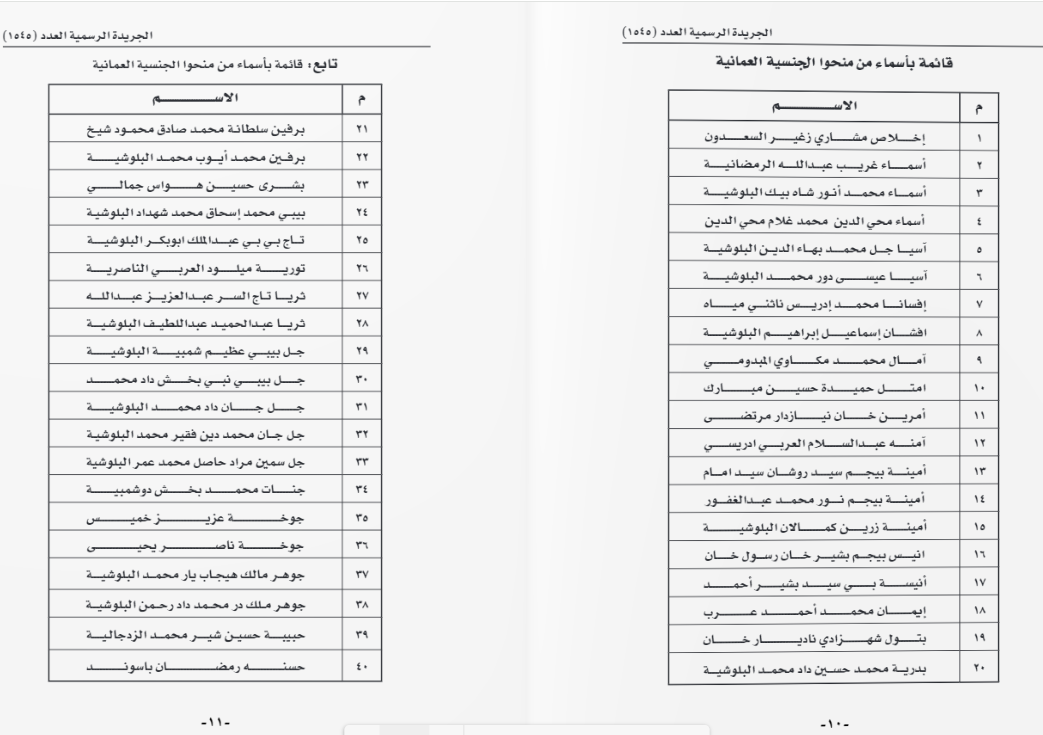 الجريدة الرسمية العدد (١٥٤٥)
قائمة بأسماء من منحوا الجنسية العمانية
م الاســـم
١ إخلاص مشاري زغير السعدون
٢ أسماء غريب عبدالله الرمضانية
٣ أسماء محمد أنور شاه بيك البلوشية
٤ أسماء محي الدين محمد غلام محي الدين
٥ آسيا جل محمد بهاء الدين البلوشية
٦ آسيا عيسى دور محمد البلوشية
٧ إفسانا محمد إدريس ناثني مياه
٨ افشان إسماعيل إبراهيم البلوشية
٩ آمال محمد مكاوي المبدومي
١٠ امتل حميدة حسين مبارك
١١ أمرين خان نيازدار مرتضى
١٢ آمنه عبدالسلام العربي ادريسي
١٣ أمينة بيجم سيد روشان سيد امام
١٤ أمينة بيجم نور محمد عبدالغفور
١٥ أمينة زرين كمالان البلوشية
١٦ انيس بيجم بشير خان رسول خان
١٧ أنيسة بي سيد بشير أحمد
١٨ إيمان محمد أحمد عرب
١٩ بتول شهزادي نادیار خان
٢٠ بدرية محمد حسين داد محمد البلوشية
-١٠-
الجريدة الرسمية العدد (١٥٤٥)
تابع: قائمة بأسماء من منحوا الجنسية العمانية
م الاســـم
٢١ برفين سلطانة محمد صادق محمود شيخ
٢٢ برفين محمد أيوب محمد البلوشية
٢٣ بشرى حسين هواس جمالي
٢٤ بيبي محمد إسحاق محمد شهداد البلوشية
٢٥ تاج بي بي عبدالملك ابوبكر البلوشية
٢٦ تورية ميلود العربي الناصرية
٢٧ ثريا تاج السر عبدالعزيز عبدالله
٢٨ ثريا عبدالحميد عبداللطيف البلوشية
٢٩ جل بيبي عظيم شمبية البلوشية
٣٠ جل بيبي نبي بخش داد محمد
٣١ جل جان داد محمد البلوشية
٣٢ جل جان محمد دين فقير محمد البلوشية
٣٣ جل سمين مراد حاصل محمد عمر البلوشية
٣٤ جنات محمد بخش دوشمبية
٣٥ جوخة عزيز خميس
٣٦ جوخة ناصر يحيى
٣٧ جوهر مالك هيجاب يار محمد البلوشية
٣٨ جوهر ملك در محمد داد رحمن البلوشية
٣٩ حبيبة حسين شير محمد الزدجالية
٤٠ حسنه رمضان باسوند
-١١-